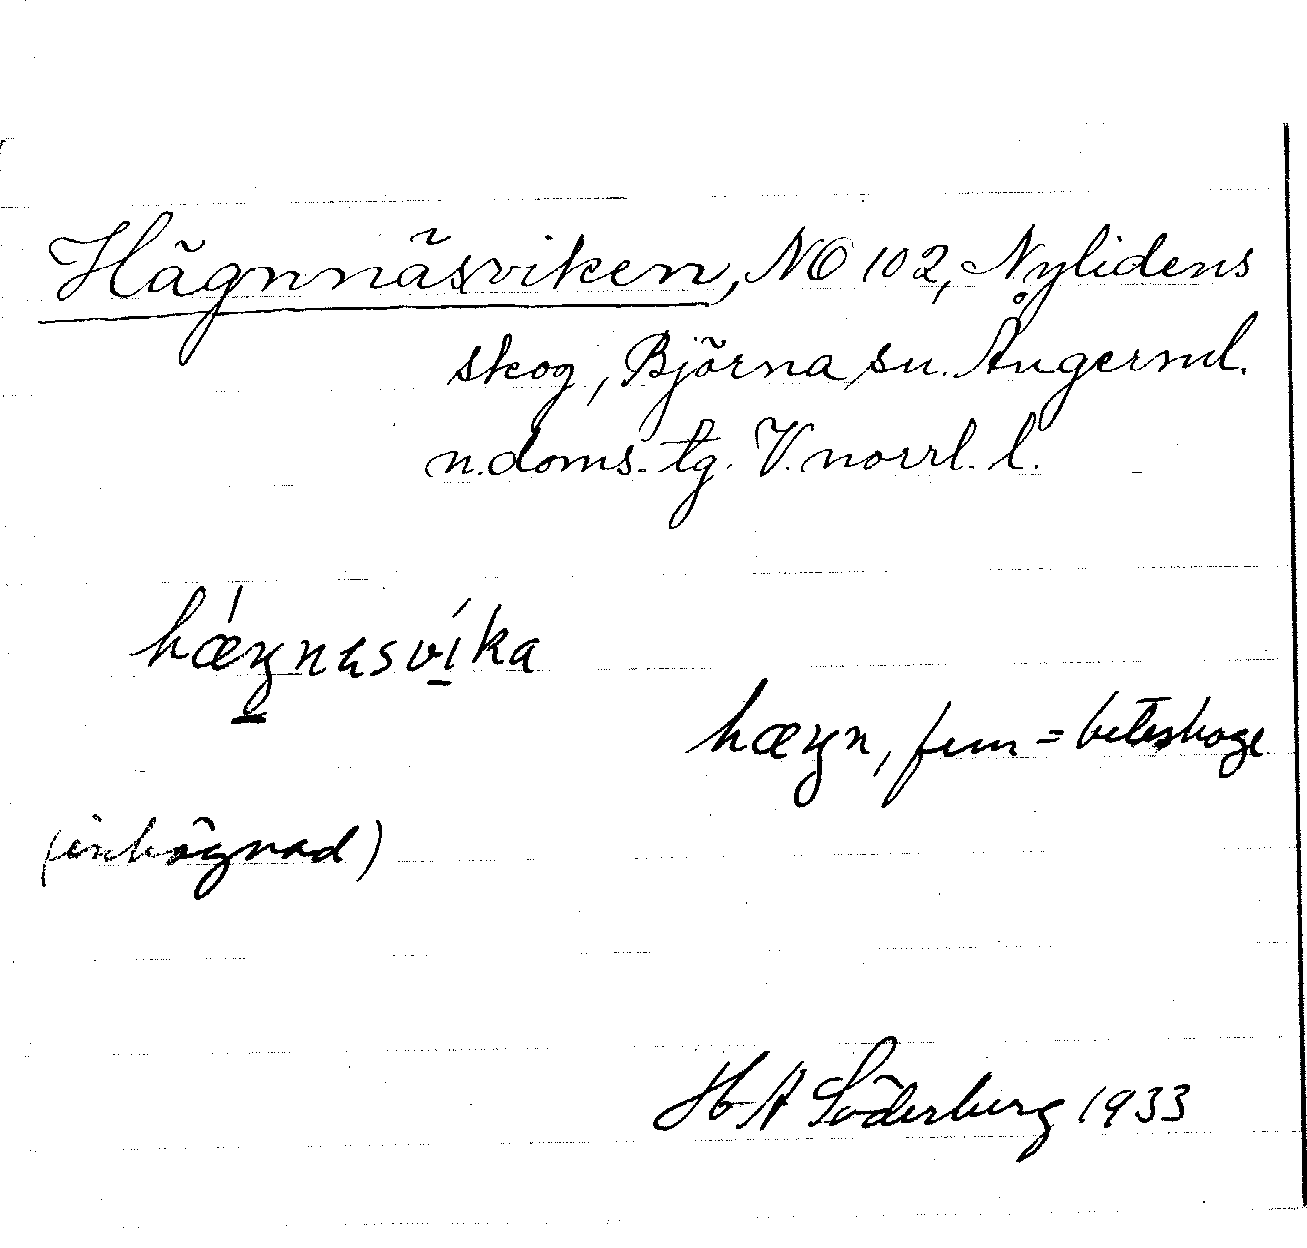 Hägnnäsviken, NO 102, Nylidens
skog, Björna sn. Ångerml.
n. doms. tg. V. norrl. l.
hǽgnasvíka
hægn, fem = beteshage
(inhägnad)
H A Söderberg 1933